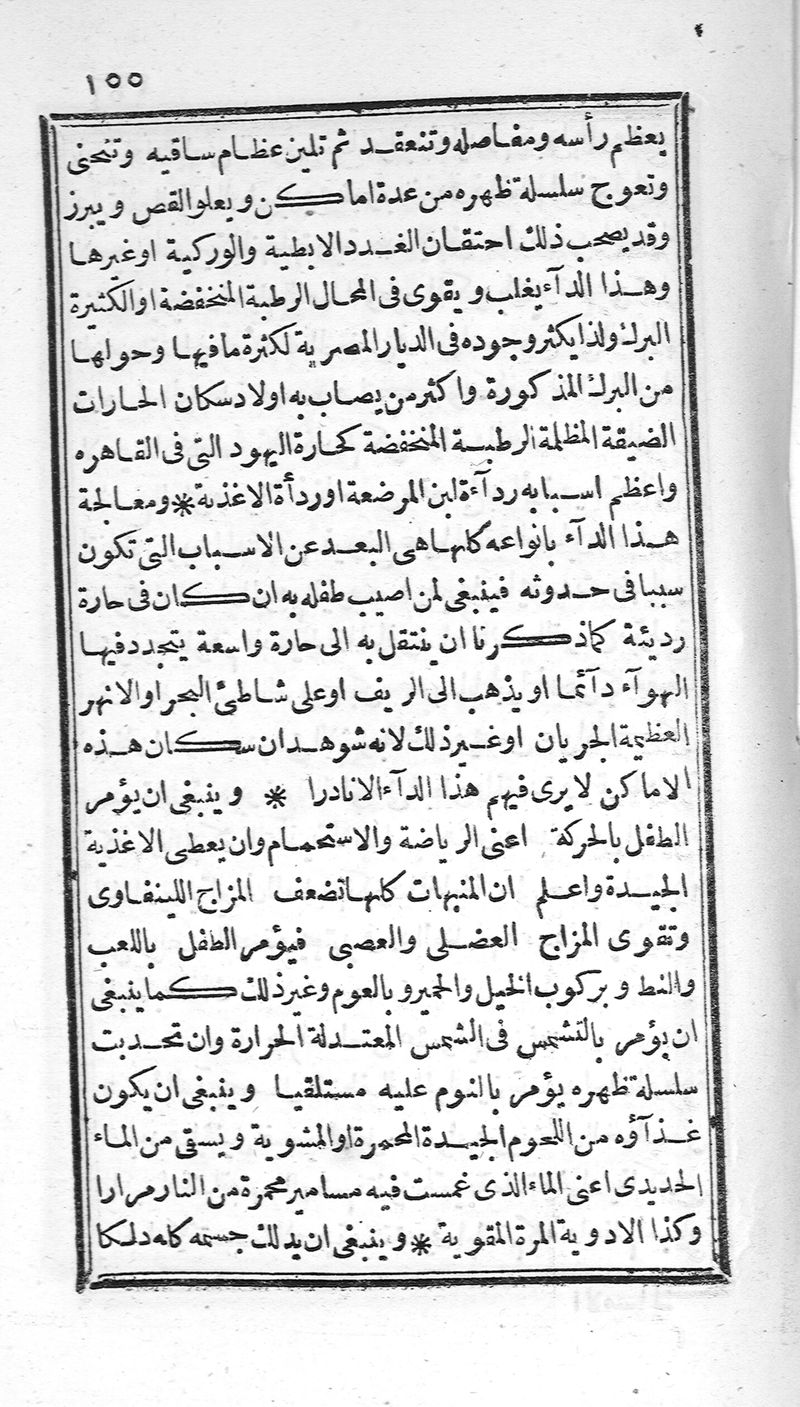 ١٥٥
يعظم رأسه ومفاصله وتنعقد ثم تلين عظام ساقيه وتنحنى
وتعوج سلسلة ظهره من عدة اماكن ويعلو القص ويبرز
وقد يصحب ذلك احتقان الغدد الابطية والوركية اوغيرها
وهذا الدآء يغلب ويقوى فى المحال الرطبة المنخفضة او الكثيرة
البرك ولذا يكثر وجوده فى الديار المصرية لكثرة ما فيها وحولها
من البرك المذكورة واكثر من يصاب به اولاد سكان الحارات
الضيقة المظلمة الرطبة المنخفضة كحارة اليهود التى فى القاهره
واعظم اسبابه ردآءة لبن المرضعة او ردأة الاغذية * ومعالجة
هذا الدآء بانواعه كلها هى البعد عن الاسباب التى تكون
سببا فى حدوثه فينبغى لمن اصيب طفله به ان كان فى حارة
رديئة كما ذكرنا ان ينتقل به الى حارة واسعة يتجدد فيها
الهوآء دآئما او يذهب الى الريف اوعلى شاطئ البحر او الانهر
العظيمة الجريان اوغير ذلك لانه شوهد ان سكان هذه
الاماكن لا يرى فيهم هذا الدآء الا نادرا * وينبغى ان يؤمر
الطفل بالحركة اعنى الرياضة والاستحمام وان يعطى الاغذية
الجيدة واعلم ان المنبهات كلها تضعف المزاج اللينفاوى
وتقوى المزاج العضلى والعصبى فيؤمر الطفل باللعب
والنط وبركوب الخيل والحمير وبالعوم وغير ذلك كما ينبغى
ان يؤمر بالتشمس فى الشمس المعتدلة الحرارة وان تحدبت
سلسلة ظهره يؤمر بالنوم عليه مستلقيا وينبغى ان يكون
غذآؤه من اللحوم الجيدة المحمرة او المشوية ويسقى من الماء
الحديدى اعنى الماء الذى غمست فيه مسامير محمرة من النار مرارا
وكذا الادوية المرة المقوية * وينبغى ان يدلك جسمه كله دلكا